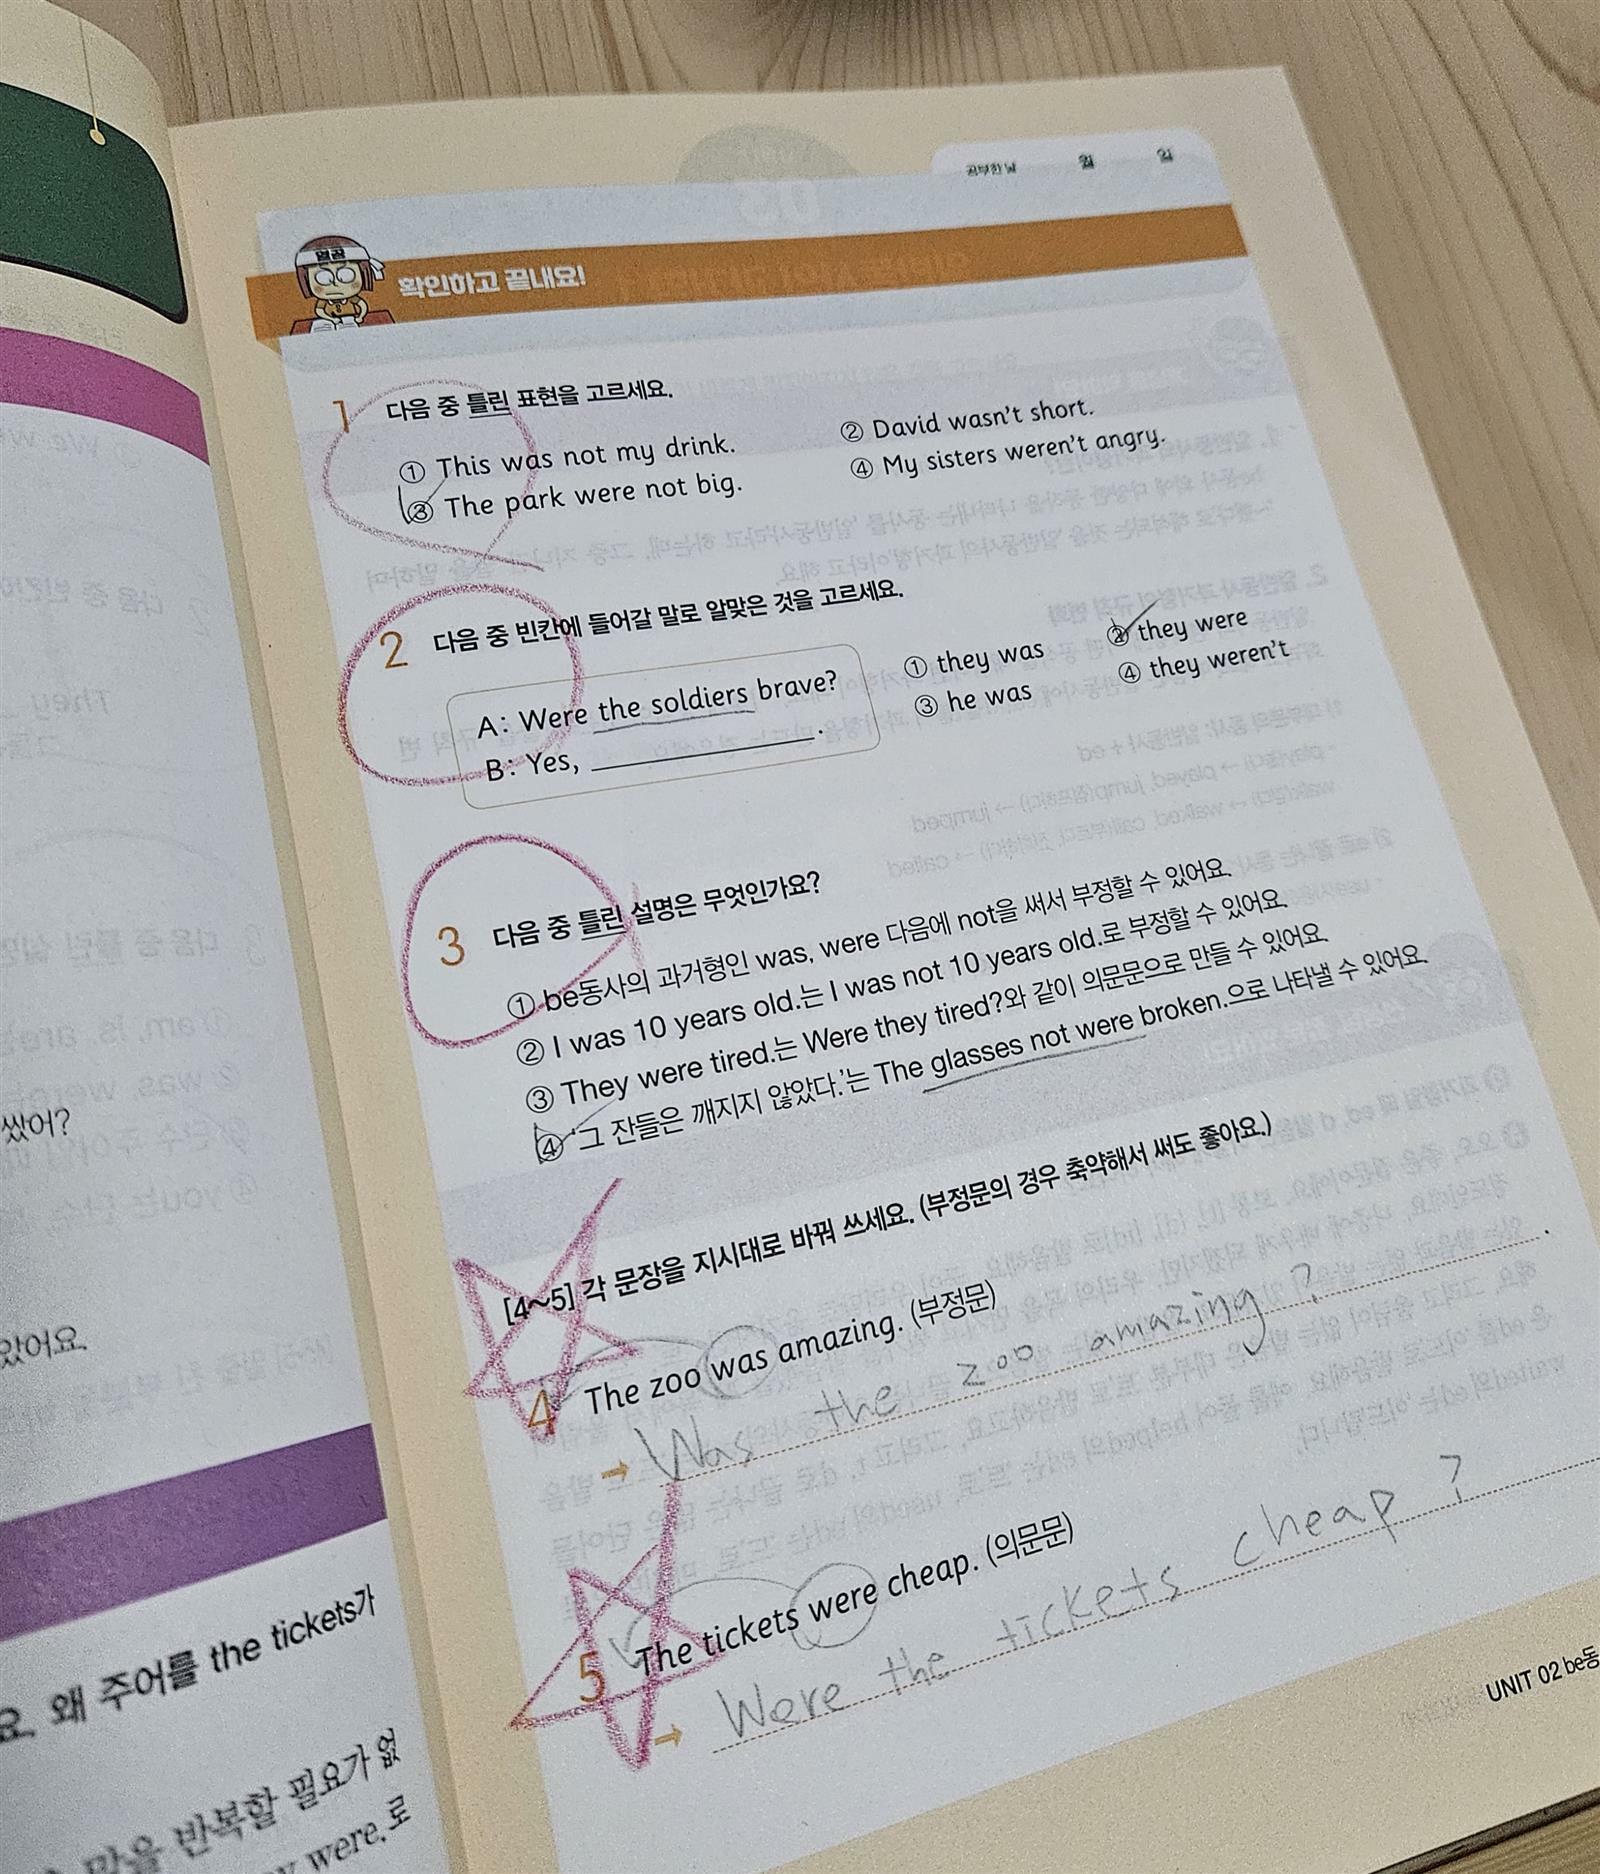 공부한 날 월 일
열공
확인하고 끝내요!
1 다음 중 틀린 표현을 고르세요.
① This was not my drink.
② David wasn't short.
③ The park were not big.
④ My sisters weren't angry.
2 다음 중 빈칸에 들어갈 말로 알맞은 것을 고르세요.
A: Were the soldiers brave?
B: Yes, ____________.
① they was
② they were
③ he was
④ they weren't
3 다음 중 틀린 설명은 무엇인가요?
① be동사의 과거형인 was, were 다음에 not을 써서 부정할 수 있어요.
② I was 10 years old.는 I was not 10 years old.로 부정할 수 있어요.
③ They were tired.는 Were they tired?와 같이 의문문으로 만들 수 있어요.
④ '그 잔들은 깨지지 않았다.'는 The glasses not were broken.으로 나타낼 수 있어요.
[4~5] 각 문장을 지시대로 바꿔 쓰세요. (부정문의 경우 축약해서 써도 좋아요.)
4 The zoo was amazing. (부정문)
→ Was the zoo amazing ? .
5 The tickets were cheap. (의문문)
→ Were the tickets cheap ?
UNIT 02 be동
썼어?
았어요.
요. 왜 주어를 the tickets가
말을 반복할 필요가 없
were.로